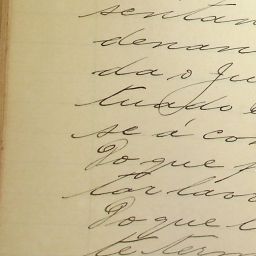 sentan
denan
da o Ju
tuado
se á con
Do que f
tar lavr
Do que l
te term